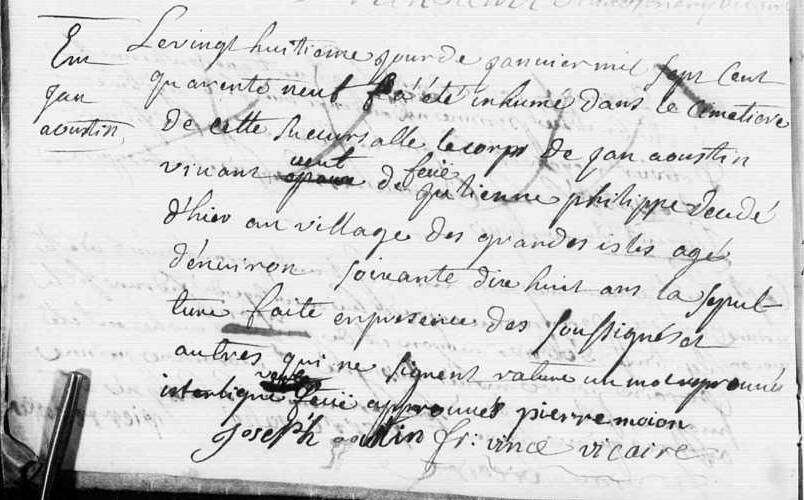 Em
Jan
aoustin
Le vingt huitieme jour de janvier mil sept cent
quarente neuf a été inhumé dans le cimetiere
de cette succursalle le corps de jan aoustin
vivant veuf de feüe julienne philippe decedé
d'hier au village des grandes isles agé
d'environ soixante dix huit ans la sepul
ture faite en presence des soussignés et
autres qui ne signent rature un mot reprouvée
interligne veuf feüe approuvés pierre moion
Joseph aoustin fr: vince vicaire